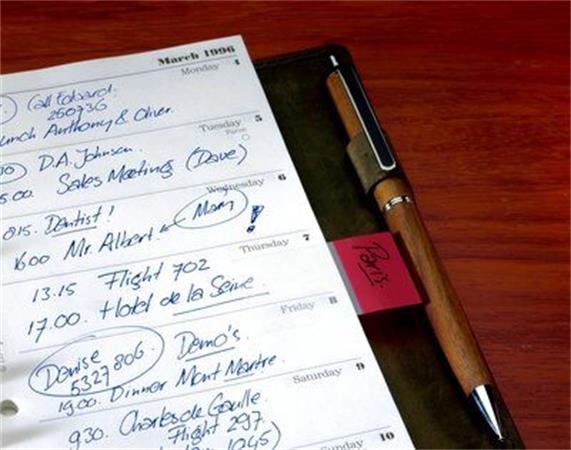 March 1996
Monday 4
Call Edward.
250736
Lunch Anthony & Oliver.
Tuesday 5
D.A. Johnson.
Sales Meeting (Dave)
Wednesday 6
815. Dentist!
1600 Mr. Albert. Mam !
Thursday 7
13.15 Flight 702
17.00. Hotel de la Seine
Paris.
Friday 8
Denise
5327806. Demo's.
1900. Dinner Mont Martre.
Saturday 9
930. Charles de Gaulle.
Flight 297.
1245)
Sunday 10